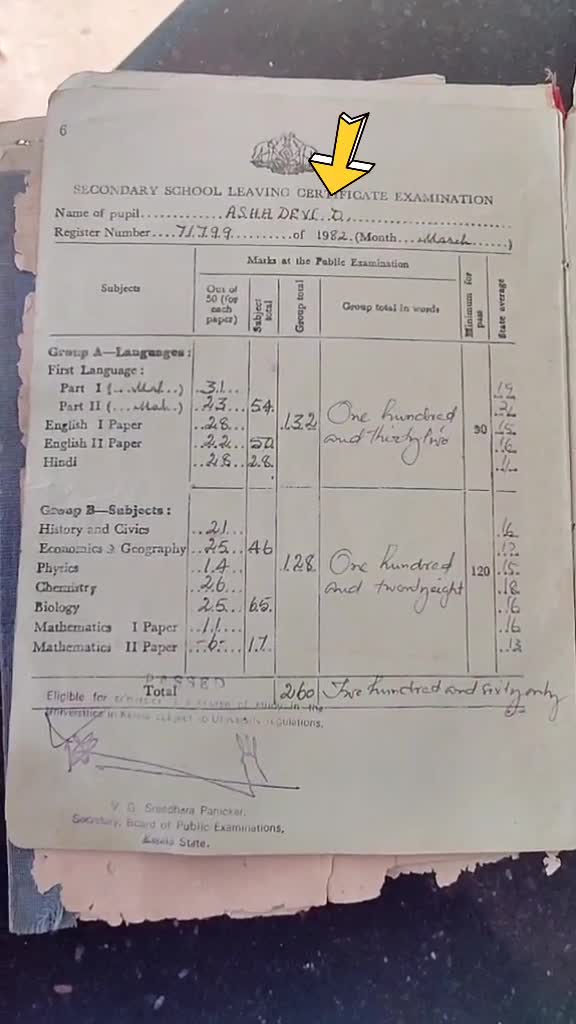 6
SECONDARY SCHOOL LEAVING CERTIFICATE EXAMINATION
Name of pupil............ASHA DEVI. O.
Register Number....71799.........of 1982.(Month...March......)
Marks at the Public Examination
Subjects
Out of 50 (for each paper)
Subject total
Group total
Group total in words
Minimum for pass
State average
Group A—Languages:
First Language:
Part I (...Mal...) 31 19
Part II (...Mal...) 23 54 21
English I Paper 28 132 One hundred and thirty two 90 15
English II Paper 22 50 16
Hindi 28 28
Group B—Subjects:
History and Civics 21 16
Economics & Geography 25 46
Physics 14 128 One hundred and twenty eight 120 15
Chemistry 26 18
Biology 25 65 16
Mathematics I Paper 11 16
Mathematics II Paper 6 17 13
PASSED
Total 260 Two hundred and sixty only
Eligible for of study in the
Universities in Kerala subject to University regulations.
V. G. Sreedhara Panicker,
Secretary, Board of Public Examinations,
Kerala State.